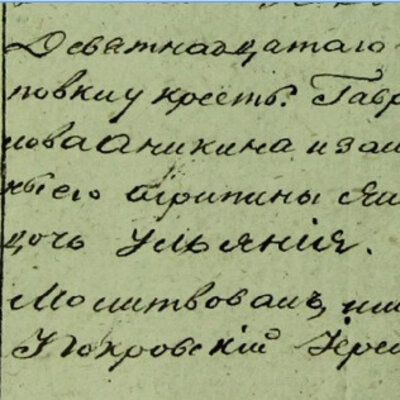 Девятнадцатаго
повкиу крестъ. Гавр
нова Аникина и зак
ны его Агрипины Яки
дочь Ульянія.
Молитвовалъ, им
Покровскій Іерей